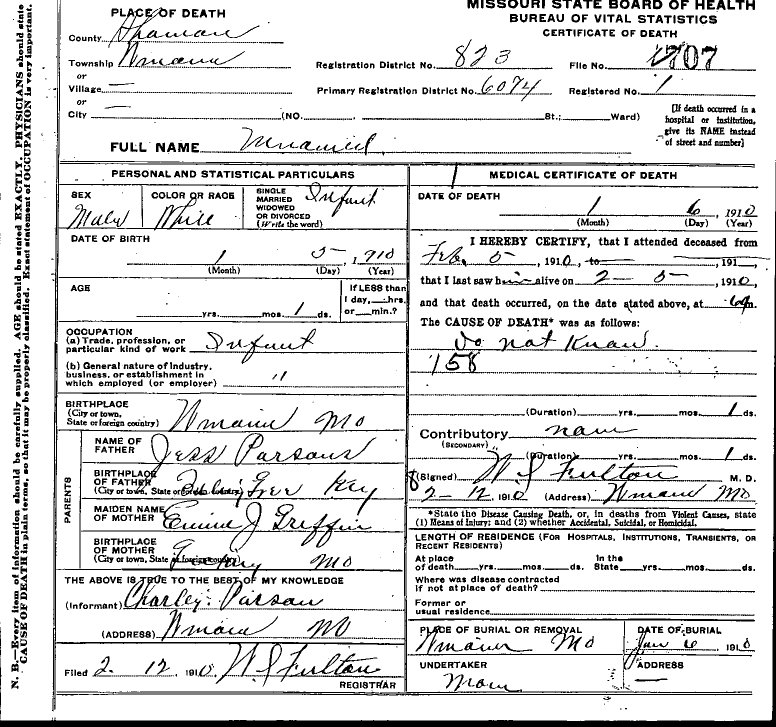 MISSOURI STATE BOARD OF HEALTH
BUREAU OF VITAL STATISTICS
CERTIFICATE OF DEATH
PLACE OF DEATH
County
Township
or
Village —
or
City — (NO. St.; Ward)
Registration District No. 823 File No. 1707
Primary Registration District No. 6074 Registered No. 1
[If death occurred in a
hospital or institution,
give its NAME instead
of street and number]
FULL NAME Unnamed
PERSONAL AND STATISTICAL PARTICULARS
SEX Male
COLOR OR RACE White
SINGLE
MARRIED
WIDOWED
OR DIVORCED
(Write the word) Infant
DATE OF BIRTH
1 5, 1910
(Month) (Day) (Year)
AGE
yrs. mos. 1 ds.
If LESS than
1 day, hrs.
or min.?
OCCUPATION
(a) Trade, profession, or
particular kind of work Infant
(b) General nature of Industry,
business, or establishment in
which employed (or employer) "
BIRTHPLACE
(City or town,
State or foreign country) Mo
PARENTS
NAME OF
FATHER Jess Parsons
BIRTHPLACE
OF FATHER
(City or town, State or foreign country) Key
MAIDEN NAME
OF MOTHER J Griffin
BIRTHPLACE
OF MOTHER
(City or town, State or foreign country) Mo
THE ABOVE IS TRUE TO THE BEST OF MY KNOWLEDGE
(Informant) Charley Parson
(ADDRESS) Mo
Filed 2 12, 1910 W S Fulton
REGISTRAR
MEDICAL CERTIFICATE OF DEATH
DATE OF DEATH
1 6, 1910
(Month) (Day) (Year)
I HEREBY CERTIFY, that I attended deceased from
Feb. 5, 1910, to 191
that I last saw him alive on 2 – 5, 1910,
and that death occurred, on the date stated above, at m.
The CAUSE OF DEATH* was as follows:
Do not Know
158
(Duration) yrs. mos. 1 ds.
Contributory
(SECONDARY)
(Duration) yrs. mos. 1 ds.
(Signed) W S Fulton M. D.
2-12, 1910 (Address) Mo
*State the Disease Causing Death, or, in deaths from Violent Causes, state
(1) Means of Injury; and (2) whether Accidental, Suicidal, or Homicidal.
LENGTH OF RESIDENCE (FOR HOSPITALS, INSTITUTIONS, TRANSIENTS, OR
RECENT RESIDENTS)
At place
of death yrs. mos. ds.
In the
State yrs. mos. ds.
Where was disease contracted
if not at place of death?
Former or
usual residence
PLACE OF BURIAL OR REMOVAL
Mo
DATE OF BURIAL
Jan 6 1910
UNDERTAKER
ADDRESS
—
N. B.—Every item of information should be carefully supplied. AGE should be stated EXACTLY. PHYSICIANS should state
CAUSE OF DEATH in plain terms, so that it may be properly classified. Exact statement of OCCUPATION is very important.